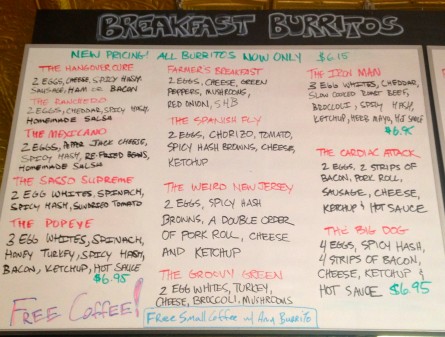 BREAKFAST BURRITOS
NEW PRICING! ALL BURRITOS NOW ONLY $6.15
THE HANGOVER CURE
2 EGGS, CHEESE, SPICY HASH
SAUSAGE, HAM OR BACON
THE RANCHERO
2 EGGS, CHEDDAR, SPICY HASH,
HOMEMADE SALSA
THE MEXICANO
2 EGGS, PEPPER JACK CHEESE,
SPICY HASH, RE-FRIED BEANS,
HOMEMADE SALSA
THE SASSO SUPREME
2 EGG WHITES, SPINACH,
SPICY HASH, SUNDRIED TOMATO
THE POPEYE
3 EGG WHITES, SPINACH,
HONEY TURKEY, SPICY HASH,
BACON, KETCHUP, HOT SAUCE
$6.95
FREE COFFEE!
FARMER'S BREAKFAST
2 EGGS, CHEESE, GREEN
PEPPERS, MUSHROOMS,
RED ONION, SHB
THE SPANISH FLY
2 EGGS, CHORIZO, TOMATO,
SPICY HASH BROWNS, CHEESE,
KETCHUP
THE WEIRD NEW JERSEY
2 EGGS, SPICY HASH
BROWNS, A DOUBLE ORDER
OF PORK ROLL, CHEESE
AND KETCHUP
THE GROOVY GREEN
2 EGG WHITES, TURKEY,
CHEESE, BROCCOLI, MUSHROOMS
FREE SMALL COFFEE w/ ANY BURRITO
THE IRON MAN
3 EGG WHITES, CHEDDAR,
SLOW COOKED ROAST BEEF,
BROCCOLI, SPICY HASH,
KETCHUP, HERB MAYO, HOT SAUCE
$6.95
THE CARDIAC ATTACK
2 EGGS, 2 STRIPS OF
BACON, PORK ROLL,
SAUSAGE, CHEESE,
KETCHUP & HOT SAUCE
THE BIG DOG
4 EGGS, SPICY HASH,
4 STRIPS OF BACON,
CHEESE, KETCHUP &
HOT SAUCE $6.95